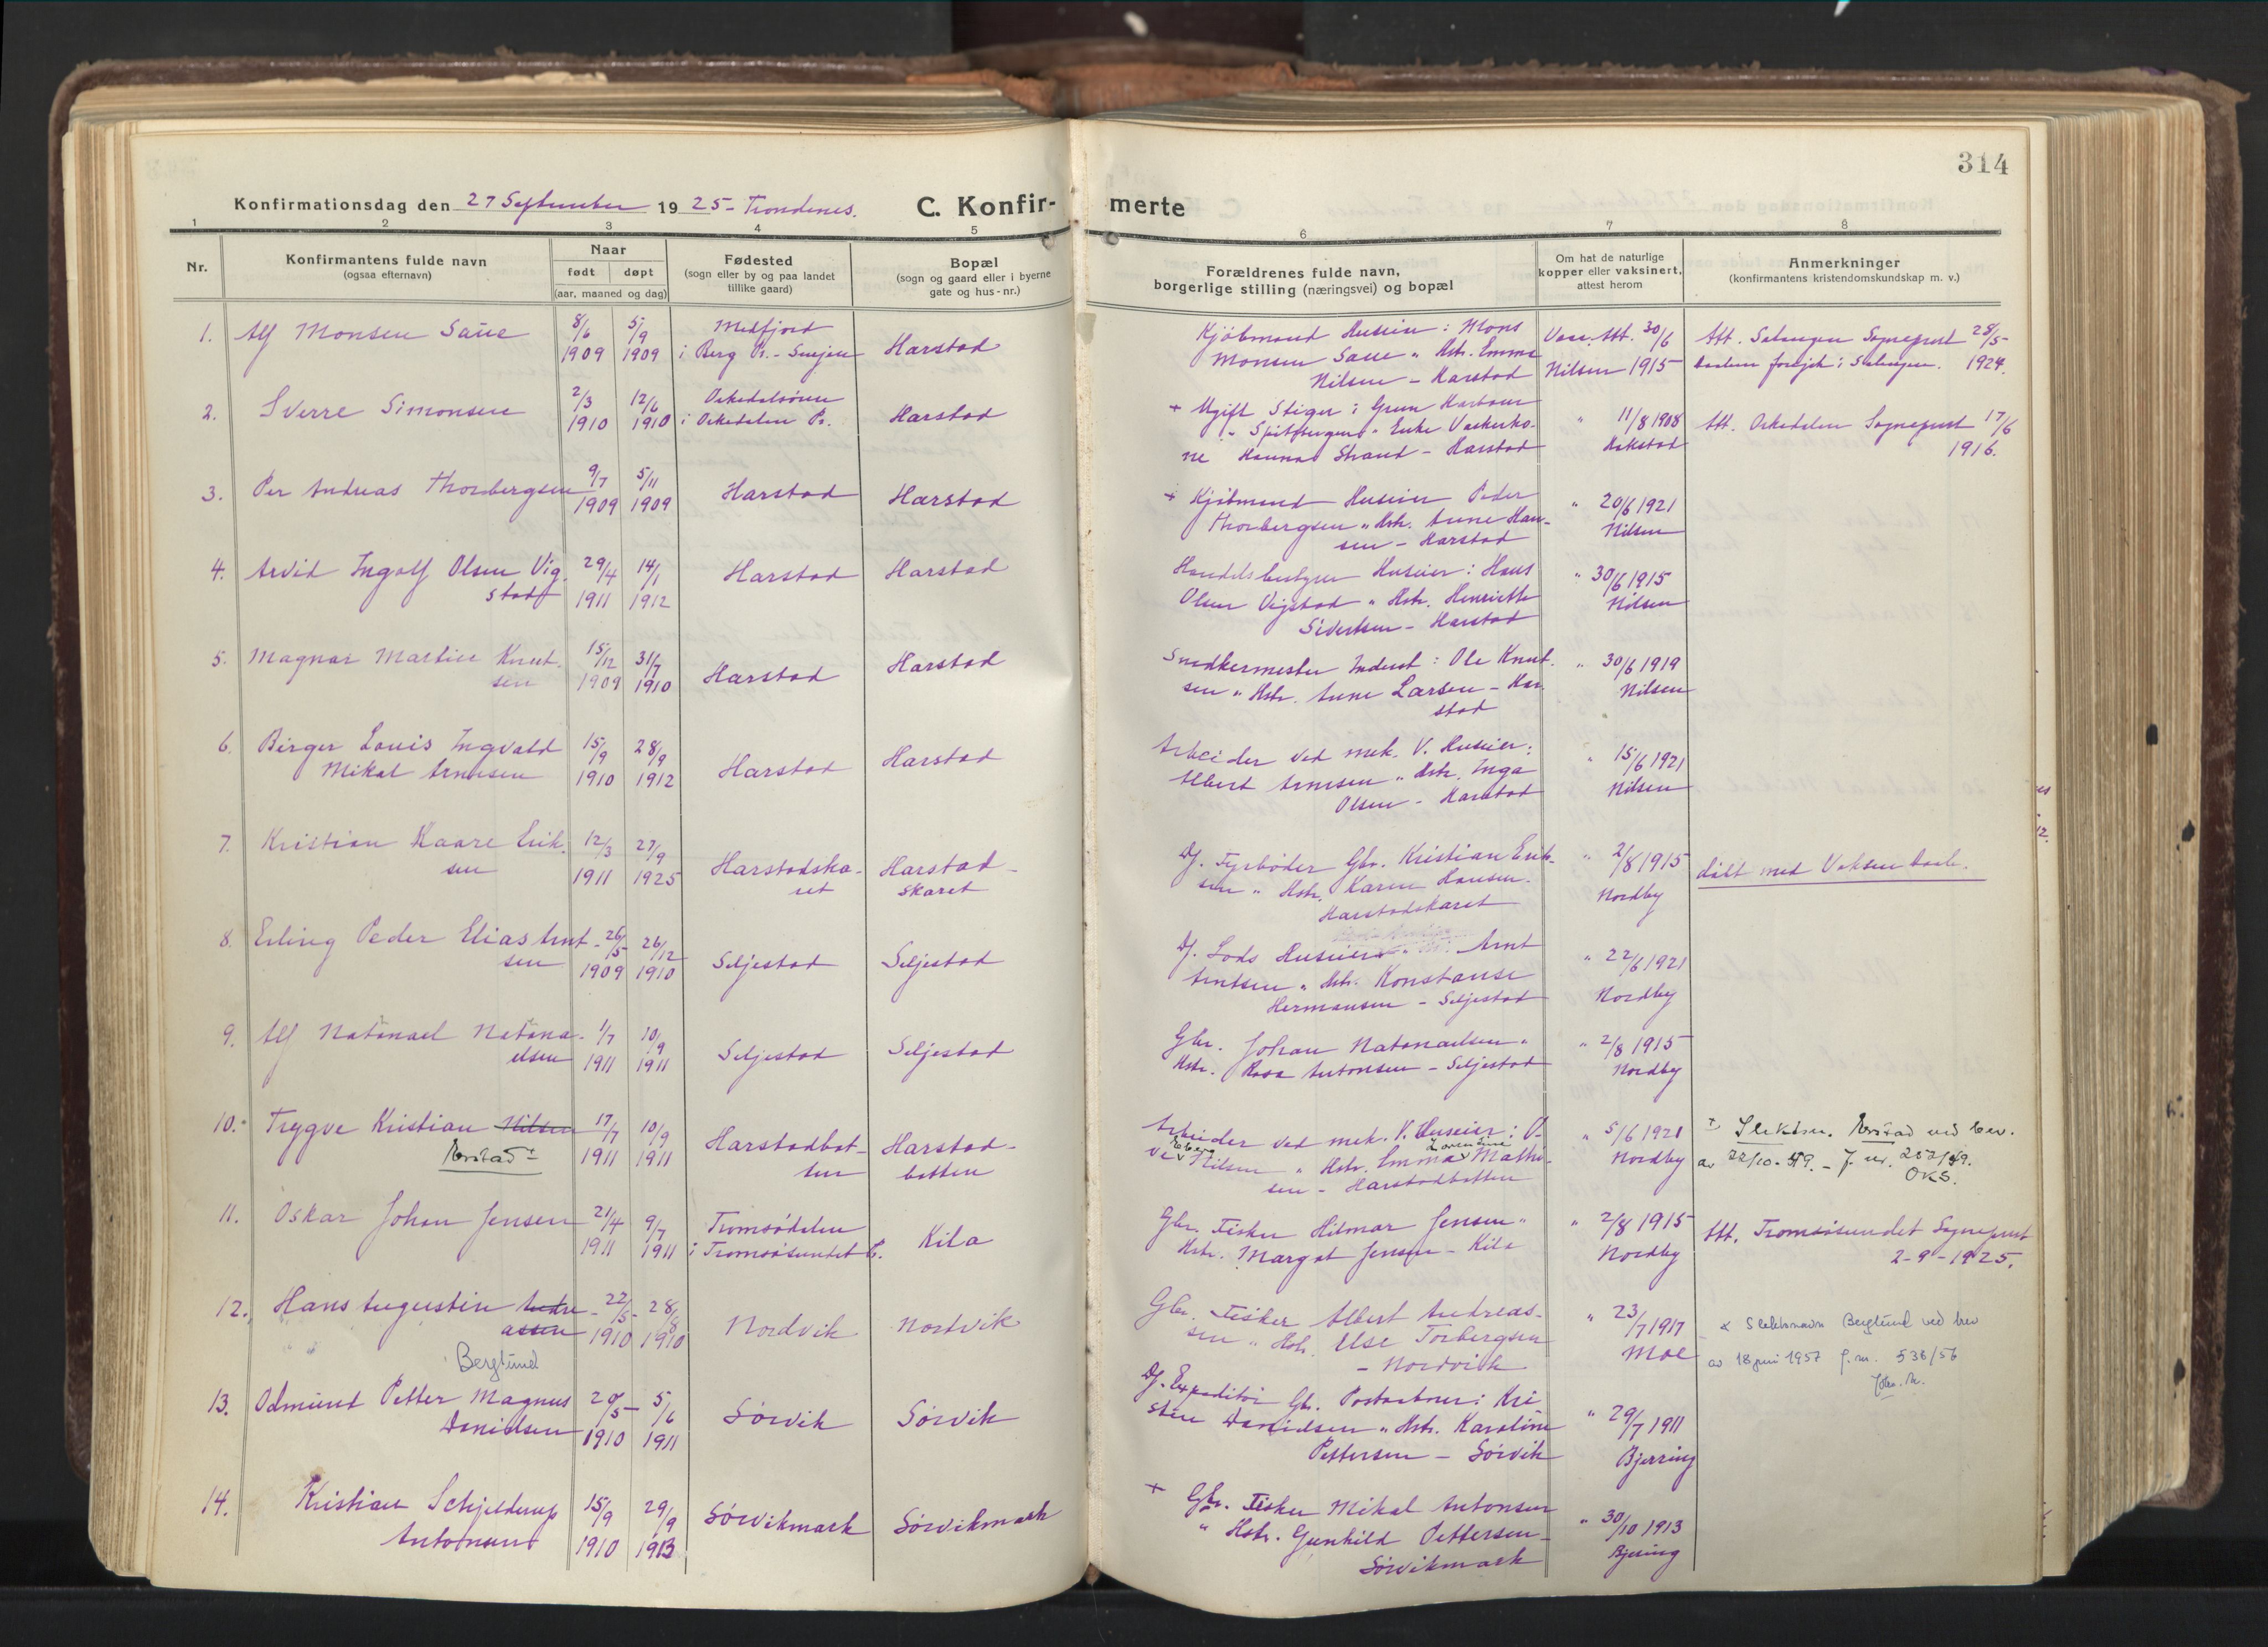 314
Konfirmationsdag den 27 September 1925 - Trondenes.
C. Konfirmerte
1 2 3 4 5 6 7 8
Nr.
Konfirmantens fulde navn
(ogsaa efternavn)
Naar
født døpt
(aar, maaned og dag)
Fødested
(sogn eller by og paa landet
tillike gaard)
Bopæl
(sogn og gaard eller i byerne
gate og hus-nr.)
Forældrenes fulde navn,
borgerlige stilling (næringsvei) og bopæl
Om hat de naturlige
kopper eller vaksinert,
attest herom
Anmerkninger
(konfirmantens kristendomskundskap m. v.)
1. Alf Monsen Saue 8/6 5/9 Medfjord Kjøbmand Huseier: Mons Vacc. Att. 30/6 Att. Salangen Sogneprest 28/5-
1909 1909 i Berg Pr. - Senjen Harstad Monsen Saue " Hstr. Emma Nilsen 1915 Daaben foregik i Salangen. 1924.
Nilsen - Harstad
2. Sverre Simonsen 2/3 12/6 Orkedalsøren Harstad + Ugift Stiger i Green Harbour " 11/8 1908 Att. Orkedalen Sogneprest 17/6
1910 1910 i Orkedalen Pr. - Spitsbergen " Enke Vaskeko- Rakstad 1916.
ne Hanna Strand - Harstad
3. Per Andreas Thorbergsen 9/7 5/11 Harstad Harstad + Kjøbmand Huseier Peder " 20/6 1921
1909 1909 Thorbergsen " Hstr. Anne Han- Nilsen
sen - Harstad
4. Arvid Ingolf Olsen Vig- 29/4 14/1 Harstad Harstad Handelsbestyrer Huseier: Hans " 30/6 1915
stad 1911 1912 Olsen Vigstad " Hstr. Henriette Nilsen
Sivertsen - Harstad
5. Magnar Martin Knut- 15/12 31/7 Harstad Harstad Snedkermester Inderst: Ole Knut- " 30/6 1919
sen 1909 1910 sen " Hstr. Anne Larsen - Har- Nilsen
stad
6. Birger Louis Ingvald 15/9 28/9 Harstad Harstad Arbeider ved mek. V. Huseier: " 15/6 1921
Mikal Arnesen 1910 1912 Albert Arnesen " Hstr. Inga Nilsen
Olsen - Harstad
7. Kristian Kaare Erik- 12/3 27/9 Harstadska- Harstad- Df. Fyrbøder Gbr. Kristian Erik- " 2/8 1915 døpt med Voksen daab.
sen 1911 1925 ret skaret sen " Hstr. Karen Hansen. Nordby
Harstadskaret
8. Erling Peder Elias Arnt- 26/5 26/12 Seljestad Seljestad Df. Lods Huseier " Arnt " 22/6 1921
sen 1909 1910 Arntsen " Hstr. Konstanse Nordby
Hermansen - Seljestad
9. Alf Natanael Natana- 1/7 10/9 Seljestad Seljestad Gbr. Johan Natanaelsen " " 2/8 1915
elsen 1911 1911 Hstr. Rosa Antonsen - Seljestad Nordby
10. Trygve Kristian Nilsen 17/7 10/9 Harstadbot- Harstad- Arbeider ved mek. V. Huseier: O- " 5/6 1921 + Slektsn. Evstad ved bev.
Evstad + 1911 1911 ten botten ve Nilsen " Hstr. Emma Mathi- Nordby av 22/10-59. - J. nr. 252/59.
sen - Harstadbotten OKS.
11. Oskar Johan Jensen 21/4 9/7 Tromsødalen Kila Gbr. Fisker Hilmar Jensen " " 2/8 1915 Att. Tromsøsundet Sogneprest
1911 1911 i Tromsøsundet P. Hstr. Margot Jensen - Kila Nordby 2-9-1925.
12. Hans Augustin Andre- 22/5- 28/8 Nordvik Nordvik Gbr. Fisker Albert Andreas- " 23/7 1917 x Slektsnavn Berglund ved brev
assen 1910 1910 sen " Hstr. Else Torbergsen Moe av 18 juni 1957 J. nr. 538/56
Berglund - Nordvik
13. Odmund Petter Magnus 20/5- 5/6 Sørvik Sørvik Df. Expeditør Gbr. Postaabner: Kri- " 29/7 1911
Danielsen 1910 1911 sten Danielsen " Hstr. Karoline Bjerring
Pettersen - Sørvik
14. Kristian Schjelderup 15/9 29/9 Sørvikmark Sørvikmark + Gbr. Fisker Mikal Antonsen " 30/10 1913
Antonsen 1910 1913 " Hstr. Gunhild Pettersen - Bjerring
Sørvikmark